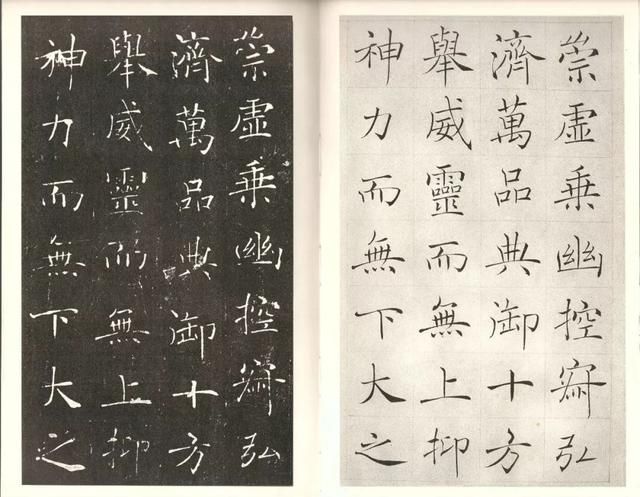 崇虛乘幽控寂弘
濟萬品典御十方
舉威靈而無上抑
神力而無下大之
崇虛乘幽控寂弘
濟萬品典御十方
舉威靈而無上抑
神力而無下大之